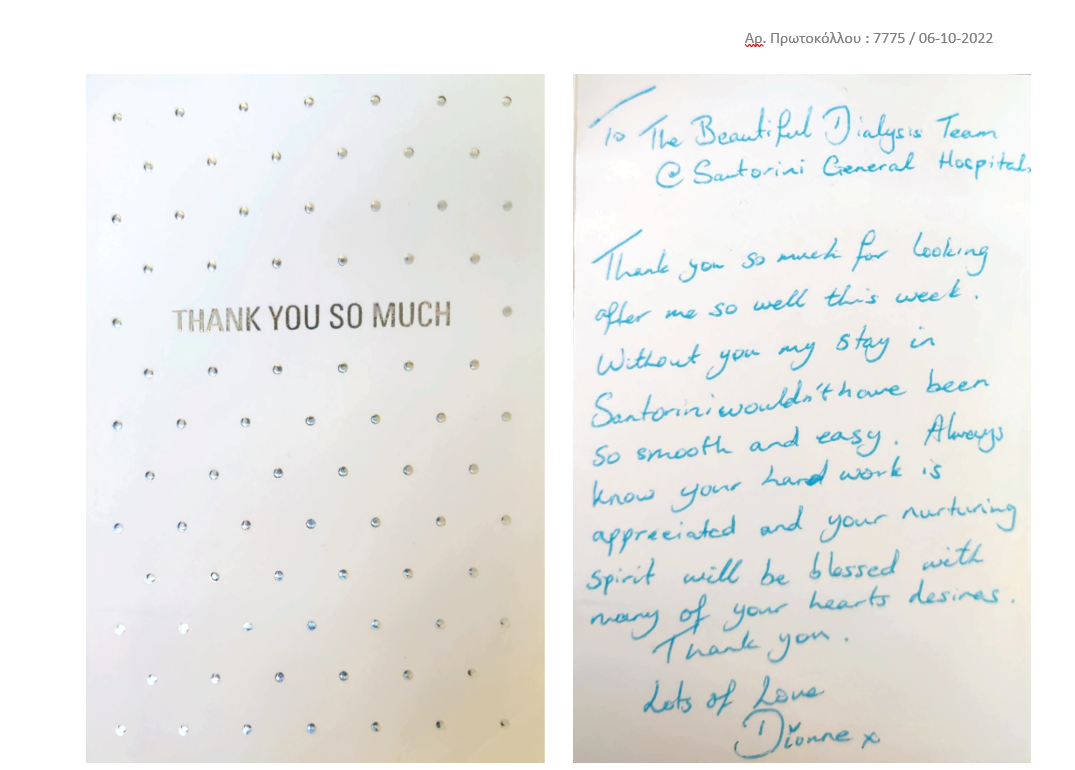 Αρ. Πρωτοκόλλου : 7775 / 06-10-2022
THANK YOU SO MUCH
To The Beautiful Dialysis Team
@ Santorini General Hospital.
Thank you so much for looking
after me so well this week.
Without you my stay in
Santorini wouldn't have been
so smooth and easy. Always
know your hard work is
appreciated and your nurturing
spirit will be blessed with
many of your hearts desires.
Thank you.
Lots of Love
Dionne x